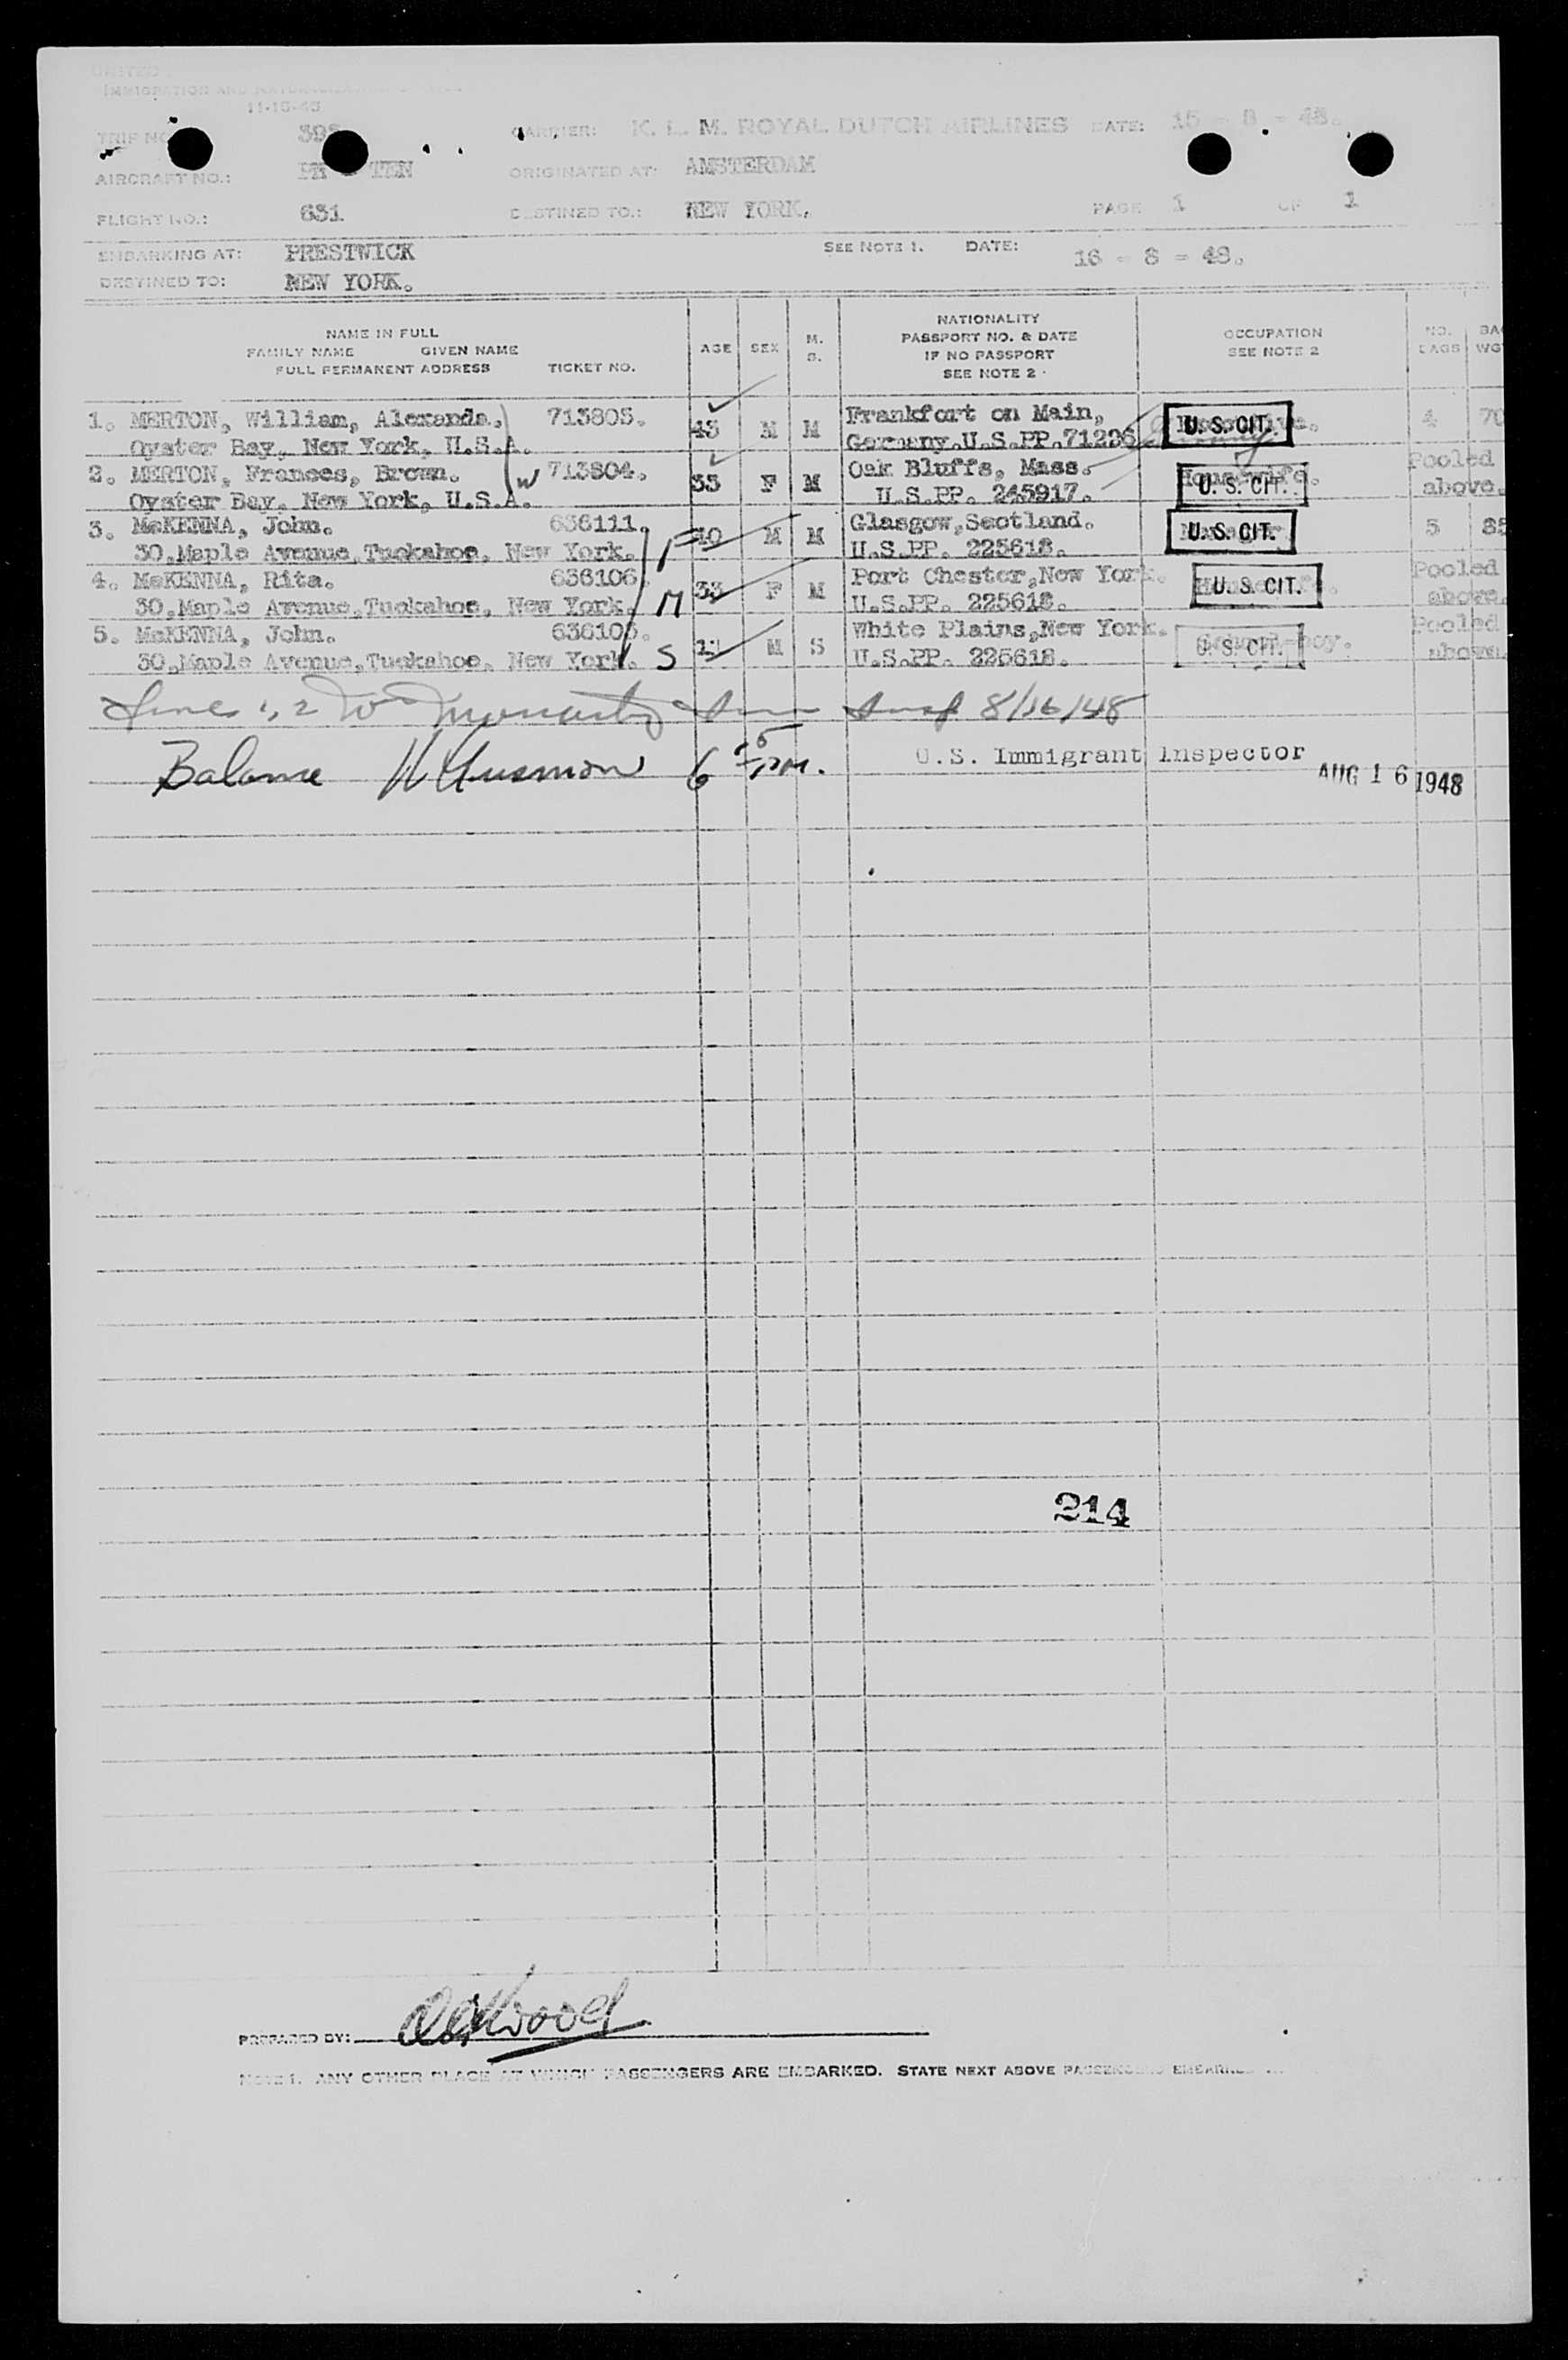 UNITED
IMMIGRATION AND
11-15-45
TRIP NO CARRIER: K. L. M. ROYAL DUTCH AIRLINES DATE: 15 - 8 - 48.
AIRCRAFT NO.: PH - TEN ORIGINATED AT: AMSTERDAM
FLIGHT NO.: 631 DESTINED TO.: NEW YORK. PAGE 1 OF 1
EMBARKING AT: PRESTWICK SEE NOTE 1. DATE: 16 - 8 - 48.
DESTINED TO: NEW YORK.
NAME IN FULL
FAMILY NAME GIVEN NAME
FULL PERMANENT ADDRESS TICKET NO.
AGE SEX M. S.
NATIONALITY
PASSPORT NO. & DATE
IF NO PASSPORT
SEE NOTE 2
OCCUPATION
SEE NOTE 2
NO. BAGS
WG
1. MERTON, William, Alexanda. 713805. 43 M M Frankfort on Main, U.S. CIT. 4 70
Oyster Bay, New York, U.S.A. Germany.U.S.PP.71236
2. MERTON, Frances, Brown. W 713804. 35 F M Oak Bluffs, Mass. Housewife. U. S. CIT. Pooled
Oyster Bay, New York, U.S.A. U.S.PP. 245917. above.
3. McKENNA, John. 636111. F 40 M M Glasgow,Scotland. U.S. CIT. 5
30,Maple Avenue,Tuckahoe, New York. U.S.PP. 225618.
4. McKENNA, Rita. 636106. M 33 F M Port Chester,New York. U. S. CIT. Pooled
30,Maple Avenue,Tuckahoe, New York. U.S.PP. 225618. above.
5. McKENNA, John. S M S White Plains,New York. U. S. CIT. Pooled
30,Maple Avenue,Tuckahoe, New York. U.S.PP. 225618. above.
Lines 1, 2 Imm Insp 8/16/48
Balance 6 PM. U.S. Immigrant Inspector AUG 16 1948
214
PREPARED BY:
NOTE 1. ANY OTHER PLACE AT WHICH PASSENGERS ARE EMBARKED. STATE NEXT ABOVE